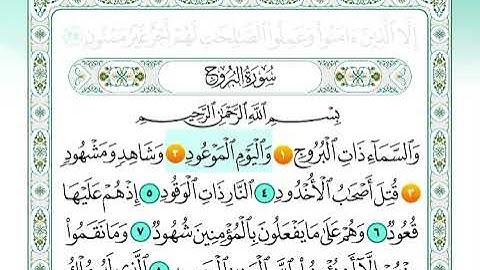 إِلَّا ٱلَّذِينَ ءَامَنُوا۟ وَعَمِلُوا۟ ٱلصَّـٰلِحَـٰتِ لَهُمْ أَجْرٌ غَيْرُ مَمْنُونٍۭ ٢٥
سُورَةُ البُرُوجِ
بِسْمِ ٱللَّهِ ٱلرَّحْمَـٰنِ ٱلرَّحِيمِ
وَٱلسَّمَآءِ ذَاتِ ٱلْبُرُوجِ ١ وَٱلْيَوْمِ ٱلْمَوْعُودِ ٢ وَشَاهِدٍ وَمَشْهُودٍ
٣ قُتِلَ أَصْحَـٰبُ ٱلْأُخْدُودِ ٤ ٱلنَّارِ ذَاتِ ٱلْوَقُودِ ٥ إِذْ هُمْ عَلَيْهَا
قُعُودٌ ٦ وَهُمْ عَلَىٰ مَا يَفْعَلُونَ بِٱلْمُؤْمِنِينَ شُهُودٌ ٧ وَمَا نَقَمُوا۟